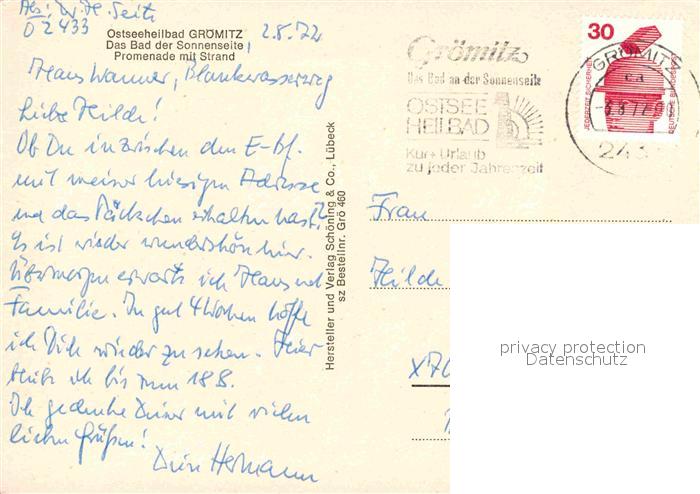 Abs: W. H. Seitz
D 2433
Ostseeheilbad GRÖMITZ
Das Bad der Sonnenseite
Promenade mit Strand
2.8.72
Haus Wanner, Blankwasserweg
Liebe Hilde!
Ob Du inzwischen den E-Bf.
mit meiner hiesigen Adresse
und das Päckchen erhalten hast?
Es ist wieder wunderschön hier.
Übermorgen erwarte ich Hans und
Familie. In gut 4 Wochen hoffe
ich Dich wieder zu sehen. Hier
bleibe ich bis zum 18.8.
Ich gedenke Deiner mit vielen
lieben Grüßen!
Dein Hermann
Hersteller und Verlag Schöning & Co., Lübeck
sz Bestellnr. Grö 460
Grömitz
Das Bad an der Sonnenseite
OSTSEE
HEILBAD
Kur + Urlaub
zu jeder Jahreszeit
GRÖMITZ
-3.8.72
243
30
JEDERZEIT SICHERHEIT
DEUTSCHE BUNDESPOST
Frau
Hilde
X70
privacy protection
Datenschutz